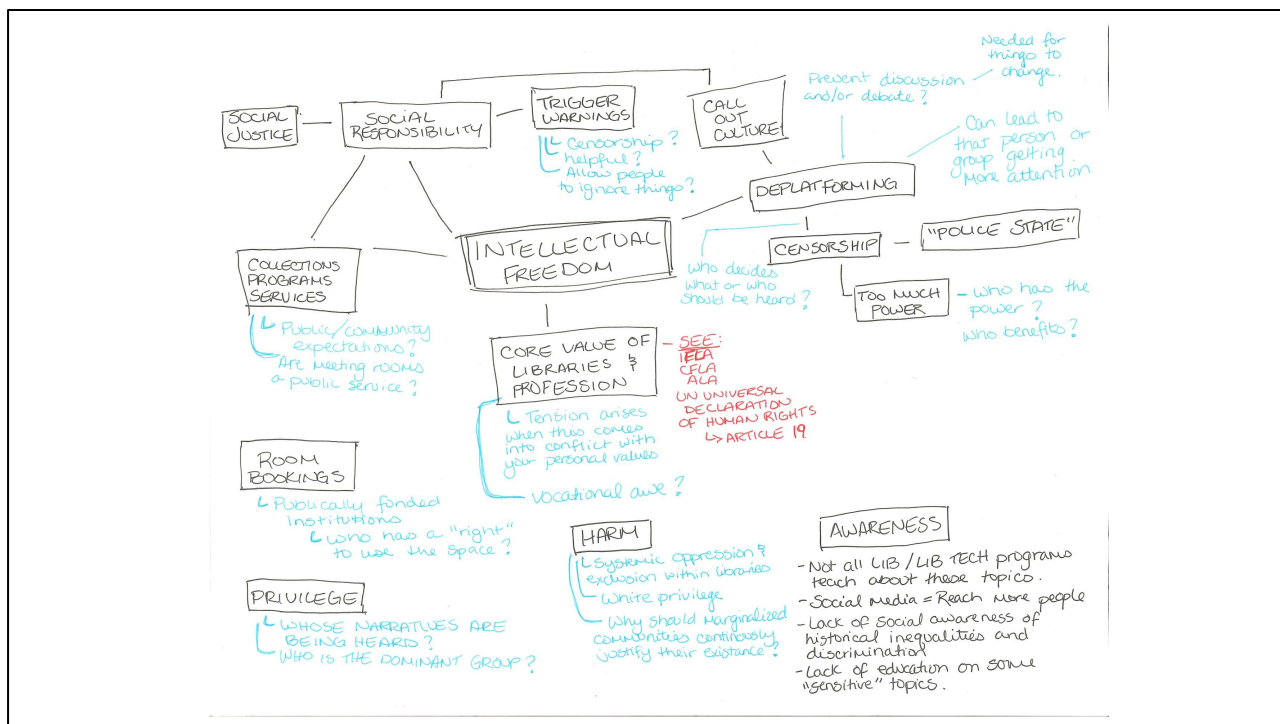 SOCIAL
JUSTICE
SOCIAL
RESPONSIBILITY
TRIGGER
WARNINGS
Censorship?
helpful?
Allow people
to ignore things?
CALL
OUT
CULTURE
Prevent discussion
and/or debate?
Needed for
things to
change.
Can lead to
that person or
group getting
More attention
DEPLATFORMING
INTELLECTUAL
FREEDOM
who decides
what or who
should be heard?
CENSORSHIP
"POLICE STATE"
TOO MUCH
POWER
- who has the
power?
who benefits?
COLLECTIONS
PROGRAMS
SERVICES
Public/community
expectations?
Are meeting rooms
a public service?
CORE VALUE OF
LIBRARIES &
PROFESSION
- SEE:
IFLA
CFLA
ALA
UN UNIVERSAL
DECLARATION
OF HUMAN RIGHTS
↳ ARTICLE 19
Tension arises
when this comes
into conflict with
your personal values
vocational awe?
ROOM
BOOKINGS
Publically funded
institutions
who has a "right"
to use the space?
PRIVILEGE
WHOSE NARRATIVES ARE
BEING HEARD?
WHO IS THE DOMINANT GROUP?
HARM
Systemic oppression &
exclusion within libraries
White privilege
Why should marginalized
communities continously
justify their existance?
AWARENESS
- Not all LIB/LIB TECH programs
teach about these topics.
- Social Media = Reach More people
- Lack of social awareness of
historical inequalities and
discrimination
- Lack of education on some
"sensitive" topics.